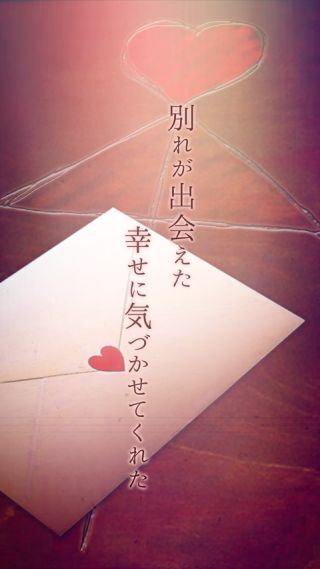 別れが出会えた
幸せに気づかせてくれた